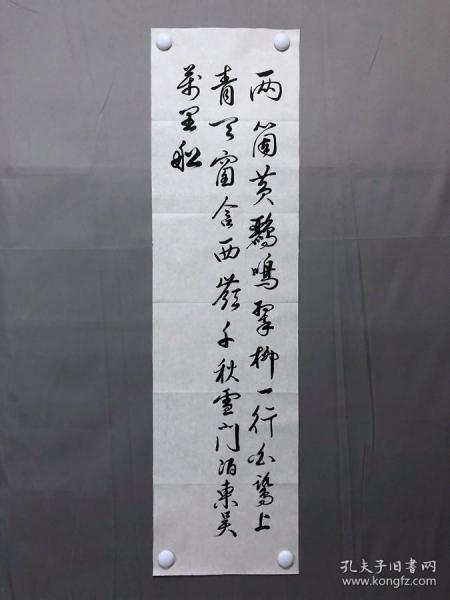 两箇黄鸝鳴翠柳一行白鷺上
青天窗含西嶺千秋雪門泊東吴
萬里船
孔夫子旧书网
www.kongfz.com